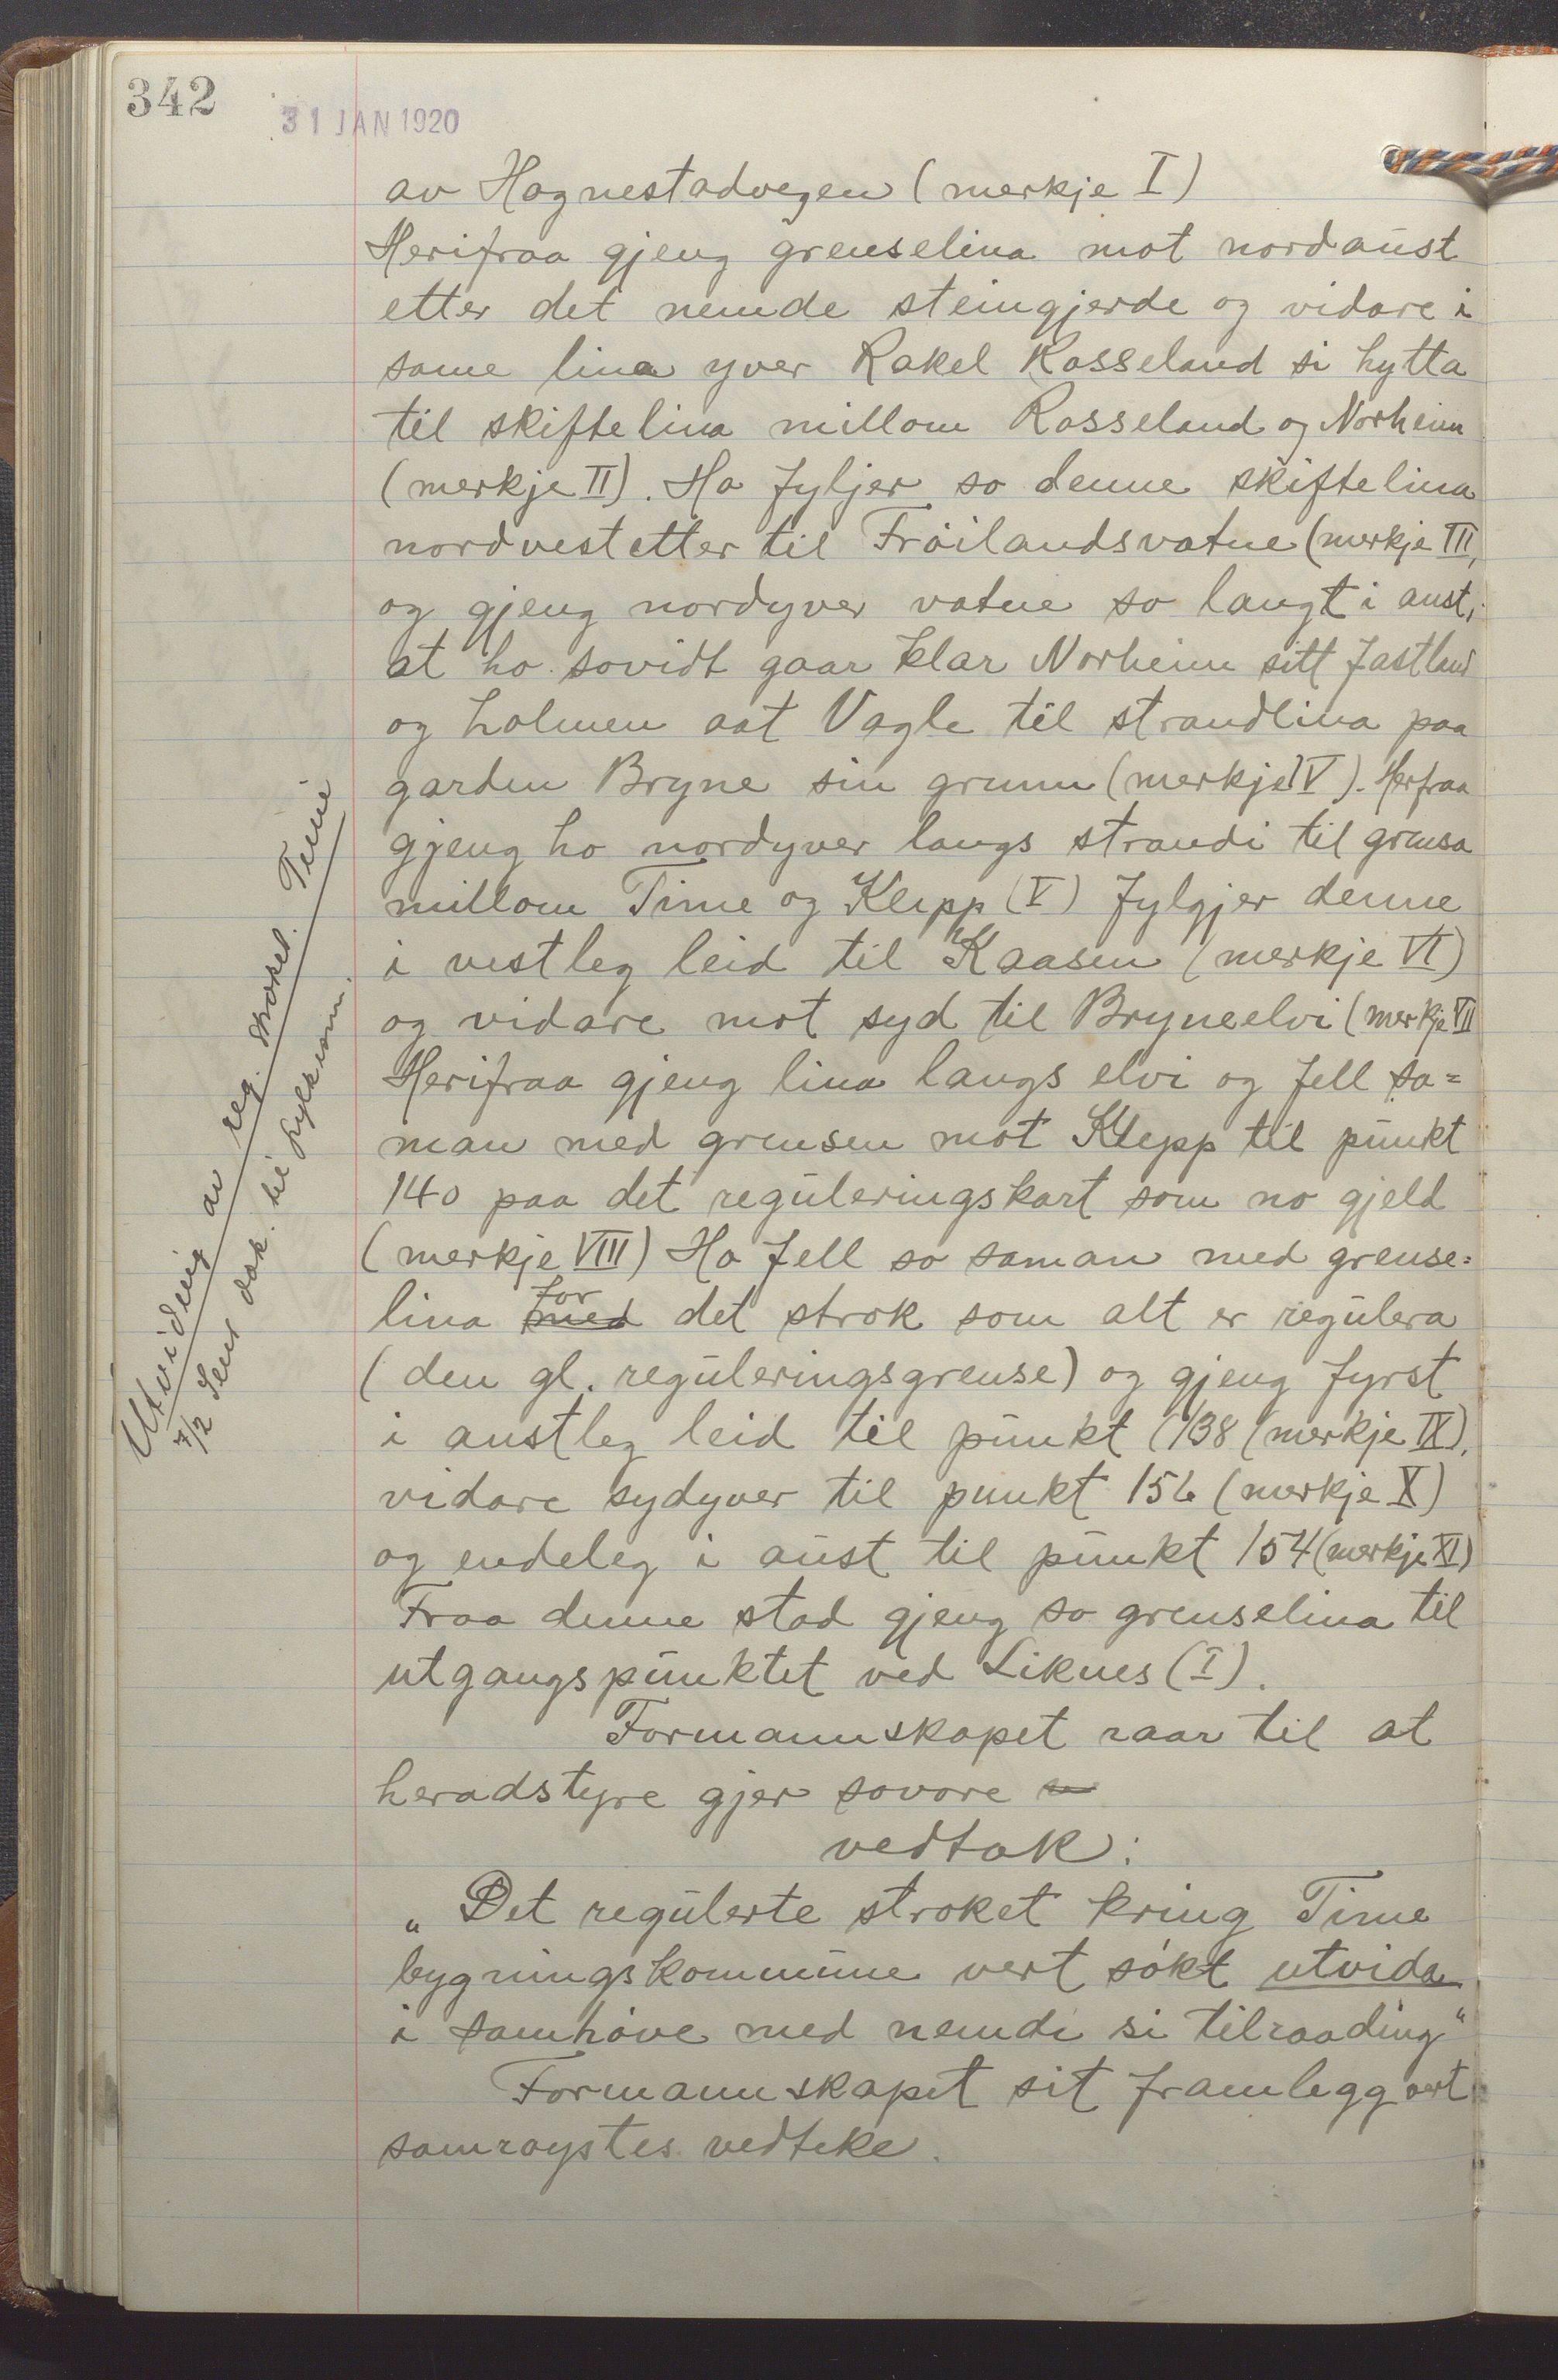 342
31 JAN 1920
av Hognestadvegen (merkje I)
Herifraa gjeng grenselina mot nordaust
etter det nemde steingjerde og vidare i
same lina yver Rakel Rosseland si hytta
til skiftelina millom Rosseland og Norheim
(merkje II). Ho fyljer so denne skiftelina
nordvestetter til Fröilandsvatne (merkje III,
og gjeng nordyver vatne so langt i aust,
at ho sovidt gaar klar Norheim sitt fastland
og holmen aat Vagle til strandlina paa
garden Bryne sin grunn (merkje IV). Herfraa
gjeng ho nordyver langs strandi til grensa
millom Time og Klepp (V) fylgjer denne
i vestleg leid til Kaasen (merkje VI)
og vidare mot syd til Bryneelvi (merkje VII
Herifraa gjeng lina langs elvi og fell sa=
man med grensen mot Klepp til punkt
140 paa det reguleringskart som no gjeld
(merkje VIII) Ho fell so saman med grense=
lina med for det strok som alt er regulera
(den gl. reguleringsgrense) og gjeng fyrst
i austleg leid til punkt (138 (merkje IX),
vidare sydyver til punkt 156 (merkje X)
og endeleg i aust til punkt 154 (merkje XI)
Fraa denne stad gjeng so grenselina til
utgangspunktet ved Liknes (I).
Formannskapet raar til at
heradstyre gjer sovore
vedtak:
„Det regulerte stroket kring Time
bygningskommune vert søkt utvida
i samhöve med nemdi si tilraading"
Formannskapet sit framlegg vert
samroystes vedteke.
Utviding av reg. stroket. Time
7/2 Send dok. til fylkesm.